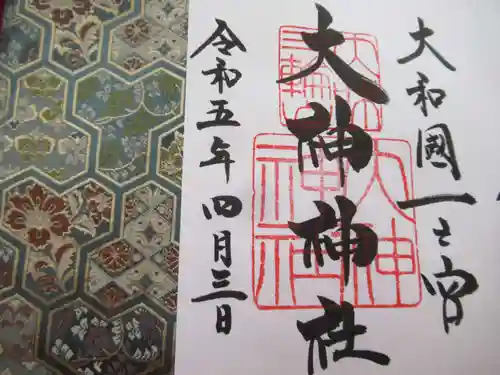 大和國一之宮
大神神社
令和五年四月三日
三輪明神
大神神社